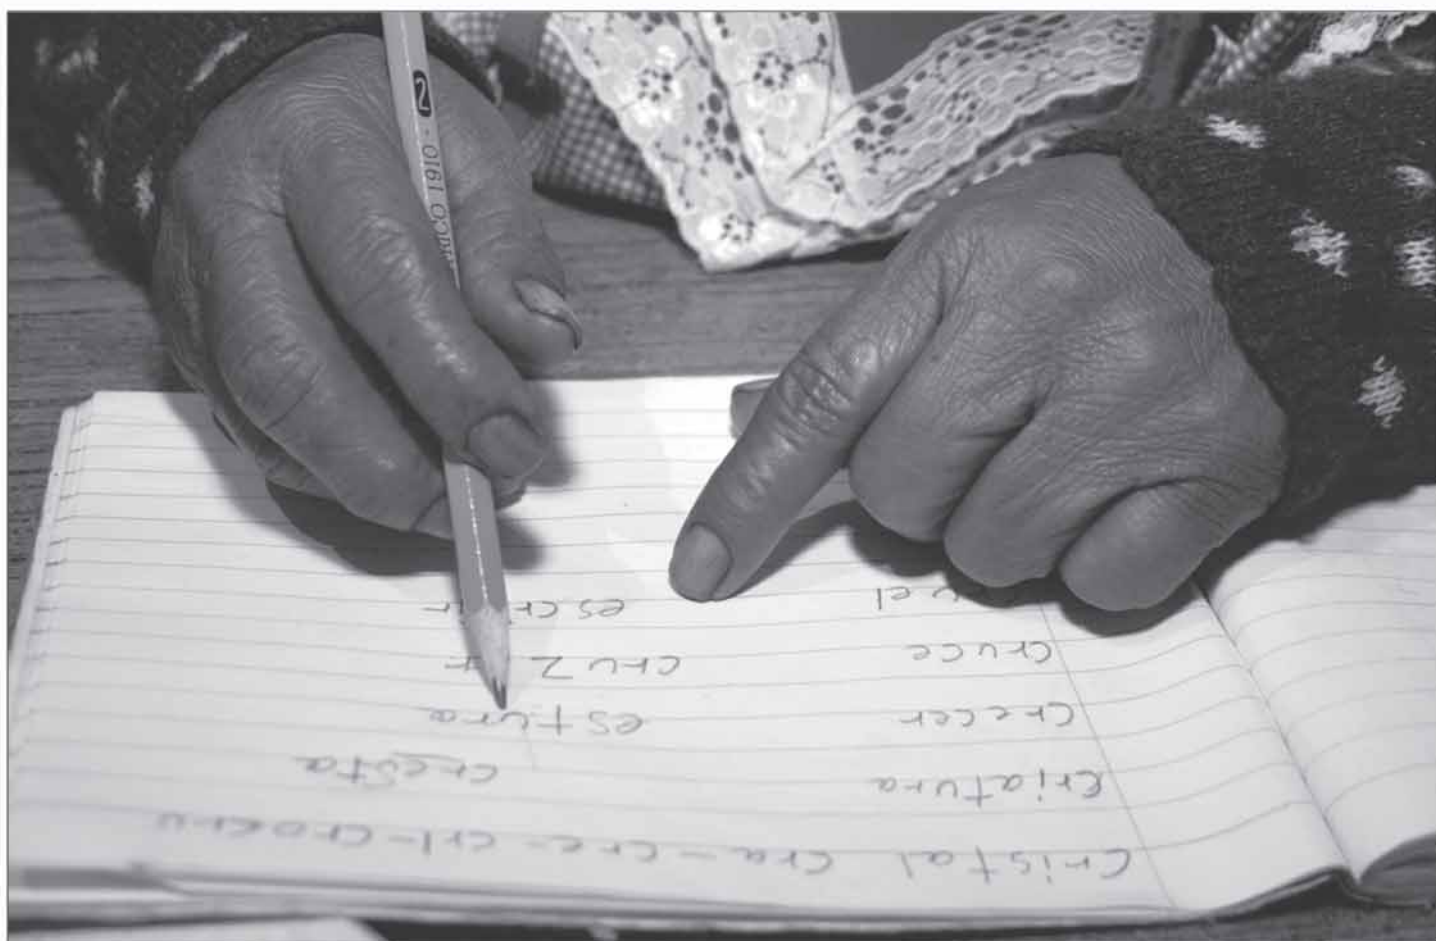 Cristal Cra - cre - cri - crocru
Criatura cresta
Crecer estura
Cruce
1910 - 2